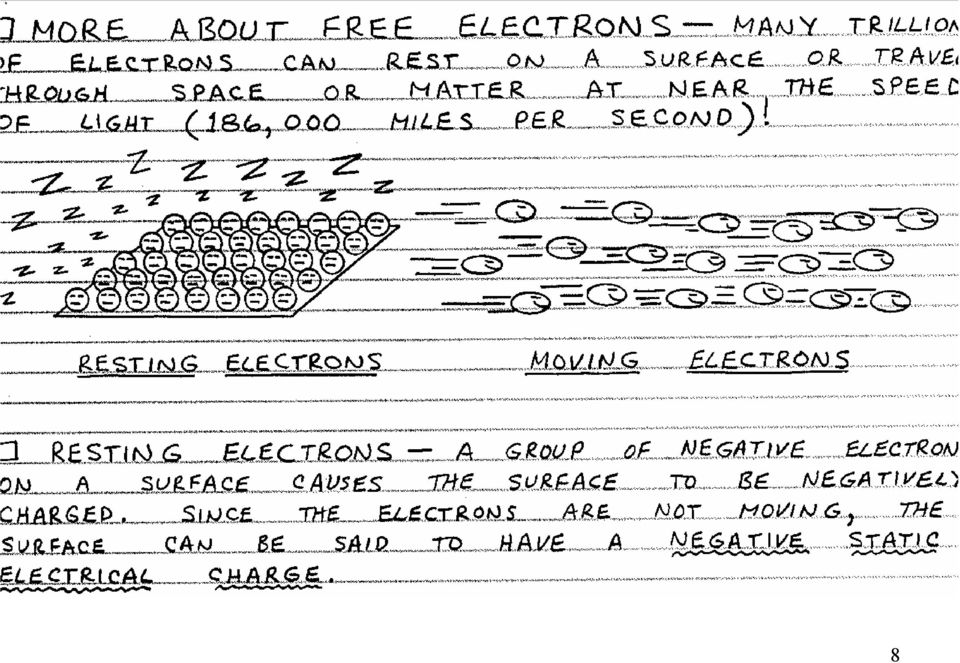 MORE ABOUT FREE ELECTRONS — MANY TRILLION
OF ELECTRONS CAN REST ON A SURFACE OR TRAVEL
THROUGH SPACE OR MATTER AT NEAR THE SPEED
OF LIGHT (186,000 MILES PER SECOND)!
Z Z Z Z Z
Z Z Z Z
Z Z Z Z Z Z Z
Z Z
Z Z Z
Z
RESTING ELECTRONS MOVING ELECTRONS
RESTING ELECTRONS — A GROUP OF NEGATIVE ELECTRON
ON A SURFACE CAUSES THE SURFACE TO BE NEGATIVELY
CHARGED. SINCE THE ELECTRONS ARE NOT MOVING, THE
SURFACE CAN BE SAID TO HAVE A NEGATIVE STATIC
ELECTRICAL CHARGE.
8